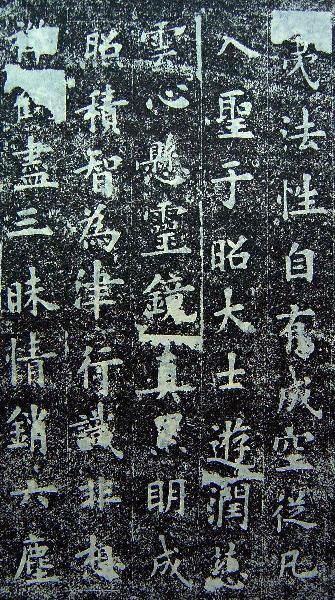 法性自有成空從凡
入聖于昭大士遊潤慈
雲心懸靈鏡真明成
昭積智為律行識非想
盡三昧情銷六塵